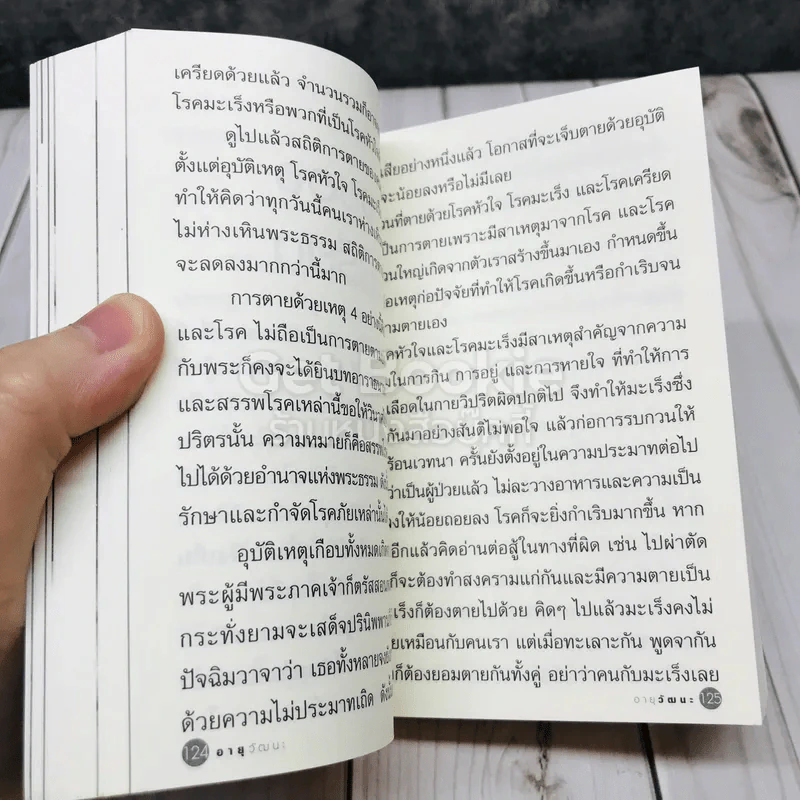 เครียดด้วยแล้ว จำนวนรวมก็อาจ
โรคมะเร็งหรือพวกที่เป็นโรคหัวใจ
ดูไปแล้วสถิติการตายของ
ตั้งแต่อุบัติเหตุ โรคหัวใจ โรคมะเร็ง
ทำให้คิดว่าทุกวันนี้คนเราห่าง
ไม่ห่างเหินพระธรรม สถิติการ
จะลดลงมากกว่านี้มาก
การตายด้วยเหตุ 4 อย่าง
และโรค ไม่ถือเป็นการตายตาม
กับพระก็คงจะได้ยินบทอาราธนา
และสรรพโรคเหล่านี้ขอให้
ปริตรนั้น ความหมายก็คือสรรพ
ไปได้ด้วยอำนาจแห่งพระธรรม
รักษาและกำจัดโรคภัยเหล่านั้น
อุบัติเหตุเกือบทั้งหมดเกิด
พระผู้มีพระภาคเจ้าก็ตรัสสอน
กระทั่งยามจะเสด็จปรินิพพาน
ปัจฉิมวาจาว่า เธอทั้งหลายจง
ด้วยความไม่ประมาทเถิด
124 อายุวัฒนะ
เสียอย่างหนึ่งแล้ว โอกาสที่จะเจ็บตายด้วยอุบัติ
จะน้อยลงหรือไม่มีเลย
วนที่ตายด้วยโรคหัวใจ โรคมะเร็ง และโรคเครียด
เป็นการตายเพราะมีสาเหตุมาจากโรค และโรค
วนใหญ่เกิดจากตัวเราสร้างขึ้นมาเอง กำหนดขึ้น
อเหตุก่อปัจจัยที่ทำให้โรคเกิดขึ้นหรือกำเริบจน
ามตายเอง
คหัวใจและโรคมะเร็งมีสาเหตุสำคัญจากความ
มในการกิน การอยู่ และการหายใจ ที่ทำให้การ
เลือดในกายวิปริตผิดปกติไป จึงทำให้มะเร็งซึ่ง
กันมาอย่างสันติไม่พอใจ แล้วก่อการรบกวนให้
ร้อนเวทนา ครั้นยังตั้งอยู่ในความประมาทต่อไป
ว่าเป็นผู้ป่วยแล้ว ไม่ละวางอาหารและความเป็น
งให้น้อยถอยลง โรคก็จะยิ่งกำเริบมากขึ้น หาก
อีกแล้วคิดอ่านต่อสู้ในทางที่ผิด เช่น ไปผ่าตัด
ก็จะต้องทำสงครามแก่กันและมีความตายเป็น
เร็งก็ต้องตายไปด้วย คิดๆ ไปแล้วมะเร็งคงไม่
ยเหมือนกับคนเรา แต่เมื่อทะเลาะกัน พูดจากัน
ก็ต้องยอมตายกันทั้งคู่ อย่าว่าคนกับมะเร็งเลย
อายุวัฒนะ 125